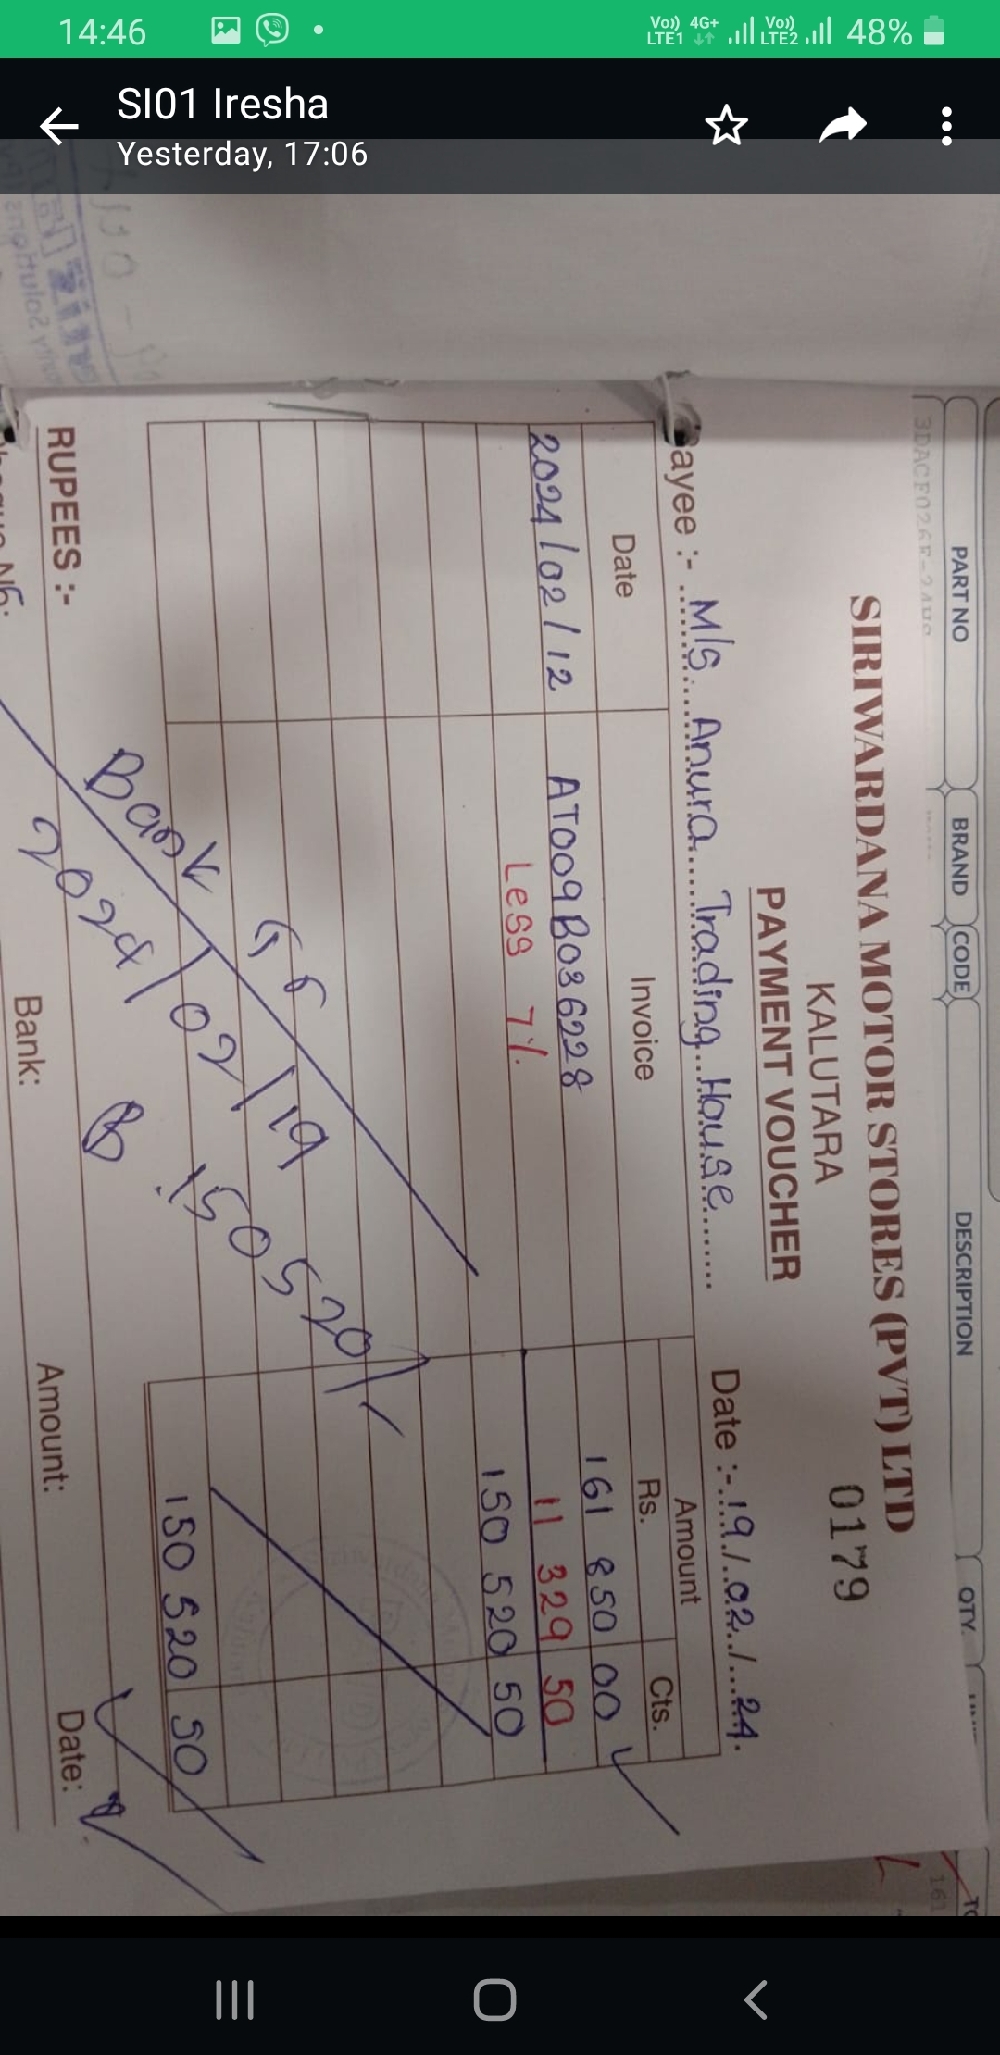 14:46 Vo)) LTE1 4G+ Vo)) LTE2 48%
SI01 Iresha
Yesterday, 17:06
PART NO BRAND CODE DESCRIPTION QTY.
SIRIWARDANA MOTOR STORES (PVT) LTD
KALUTARA 0179
PAYMENT VOUCHER
ayee :- M/S. Anura Trading House Date :- 19/02/24.
Date Invoice Amount
Rs. Cts.
2024/02/12 AT009B036228 161 850 00
Less 7% 11 329 50
150 520 50
Bank
2024/02/19
150520/
150 520 50
RUPEES :-
Bank: Amount: Date: